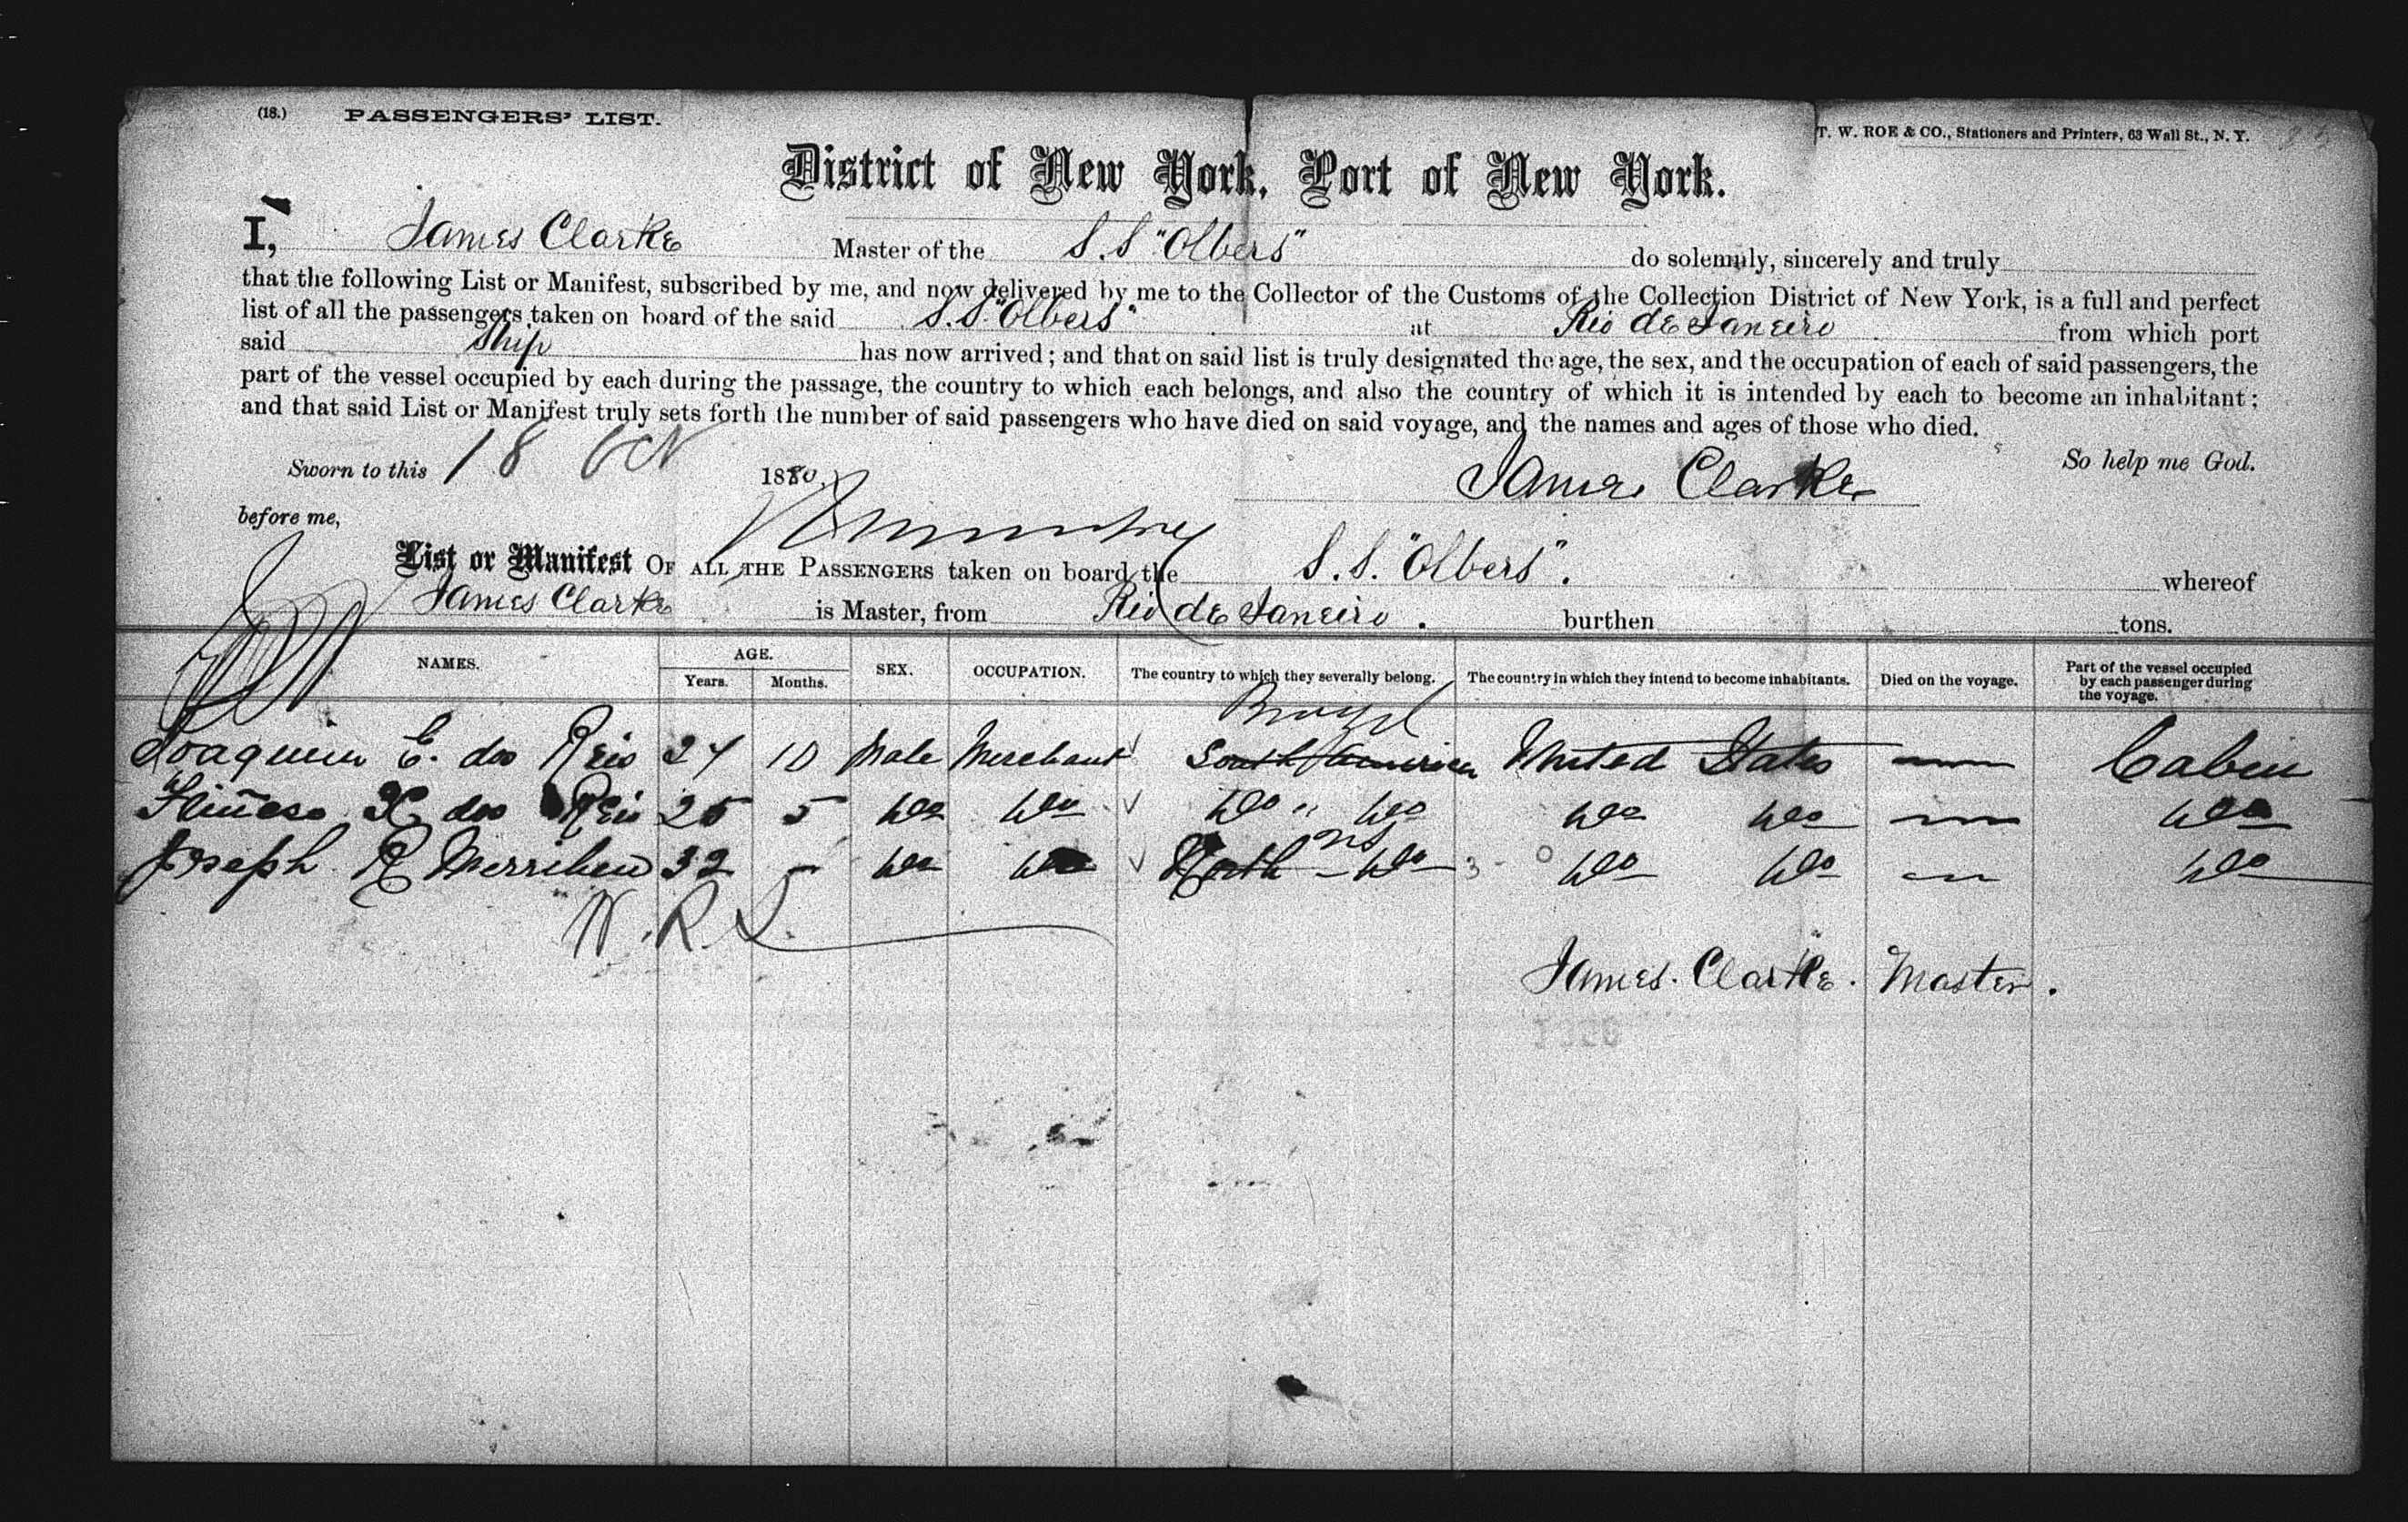 (18.) PASSENGERS' LIST.
T. W. ROE & CO., Stationers and Printers, 63 Wall St., N. Y.
District of New York, Port of New York.
I, James Clarke Master of the S. S "Olbers" do solemnly, sincerely and truly
that the following List or Manifest, subscribed by me, and now delivered by me to the Collector of the Customs of the Collection District of New York, is a full and perfect
list of all the passengers taken on board of the said S. S. "Olbers" at Rio de Janeiro from which port
said Ship has now arrived; and that on said list is truly designated the age, the sex, and the occupation of each of said passengers, the
part of the vessel occupied by each during the passage, the country to which each belongs, and also the country of which it is intended by each to become an inhabitant;
and that said List or Manifest truly sets forth the number of said passengers who have died on said voyage, and the names and ages of those who died.
Sworn to this 18 Oct 1880, So help me God.
James Clarke
before me,
List or Manifest OF ALL THE PASSENGERS taken on board the S. S. "Olbers". whereof
James Clarke is Master, from Rio de Janeiro. burthen tons.
NAMES. AGE. Years. Months. SEX. OCCUPATION. The country to which they severally belong. The country in which they intend to become inhabitants. Died on the voyage. Part of the vessel occupied by each passenger during the voyage.
Brazil
Joaquim E. dos Reis 24 10 Male Merchant South America United States — Cabin
X dos Reis 25 5 do do do " do do do — do
US
Joseph R Merrihew 32 - do do North - do do do — do
N. R. S.
James. Clarke. Master.